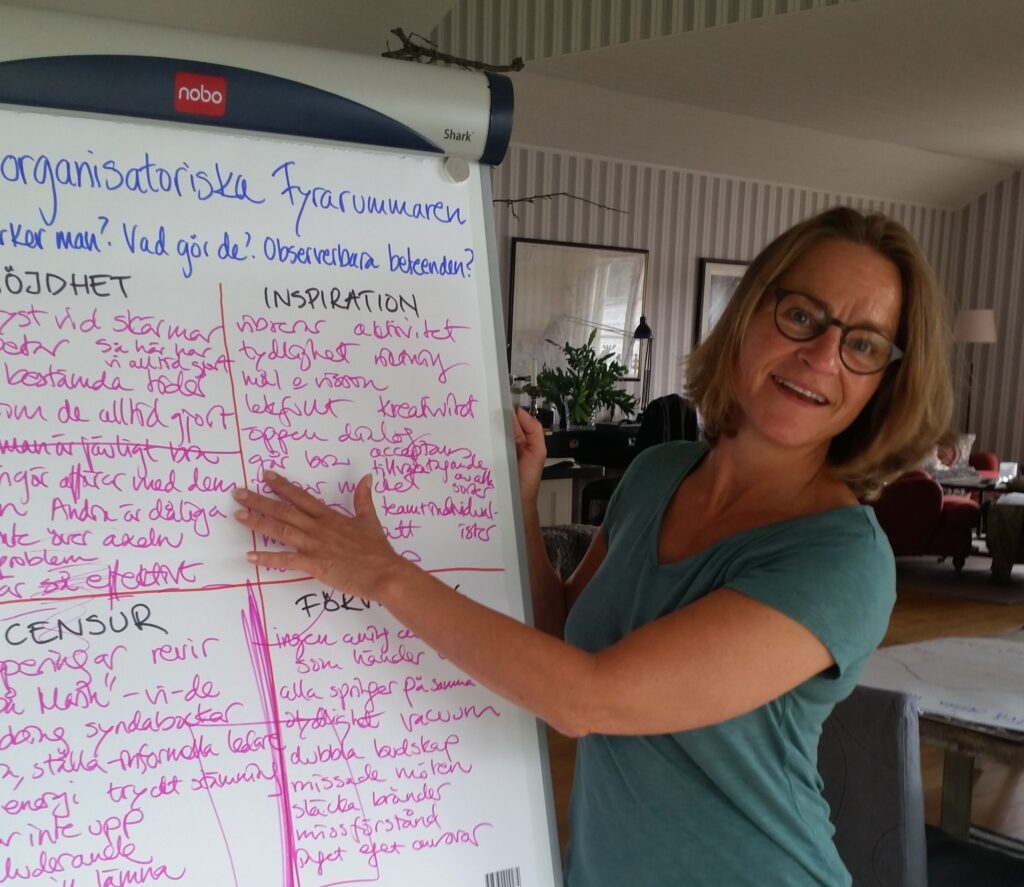 nobo
Shark
organisatoriska Fyrarummaren
rker man? Vad gör de? Observerbara beteenden?
ÖJDHET
yst vid skärmar
så här har
vi alltid gjort
bestämda roller
om de alltid gjort
man är jävligt bra
ngör affärer med dem
Andra är dåliga
nte över axeln
problem
är så effektivt
INSPIRATION
vibrerar aktivitet
tydlighet
mål e vision
lekfullt kreativitet
öppen dialog
acceptans
går bra
av alla
sorter
team+individual-
ister
CENSUR
revir
på Mash" - vi-de
syndabockar
ställa-informella ledare
energi tryckt stämning
r inte upp
luderande
lämna
FÖRV
ingen aning
som händer
alla springer på samma
otydlighet vacuum
dubbla budskap
missade möten
släcka bränder
missförstånd
eget ansvar